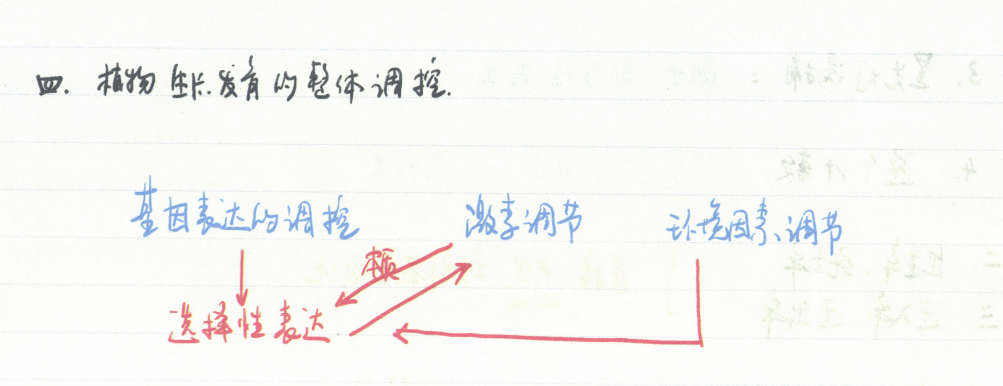 四. 植物生长发育的整体调控.
基因表达的调控 激素调节 环境因素调节
本质
选择性表达